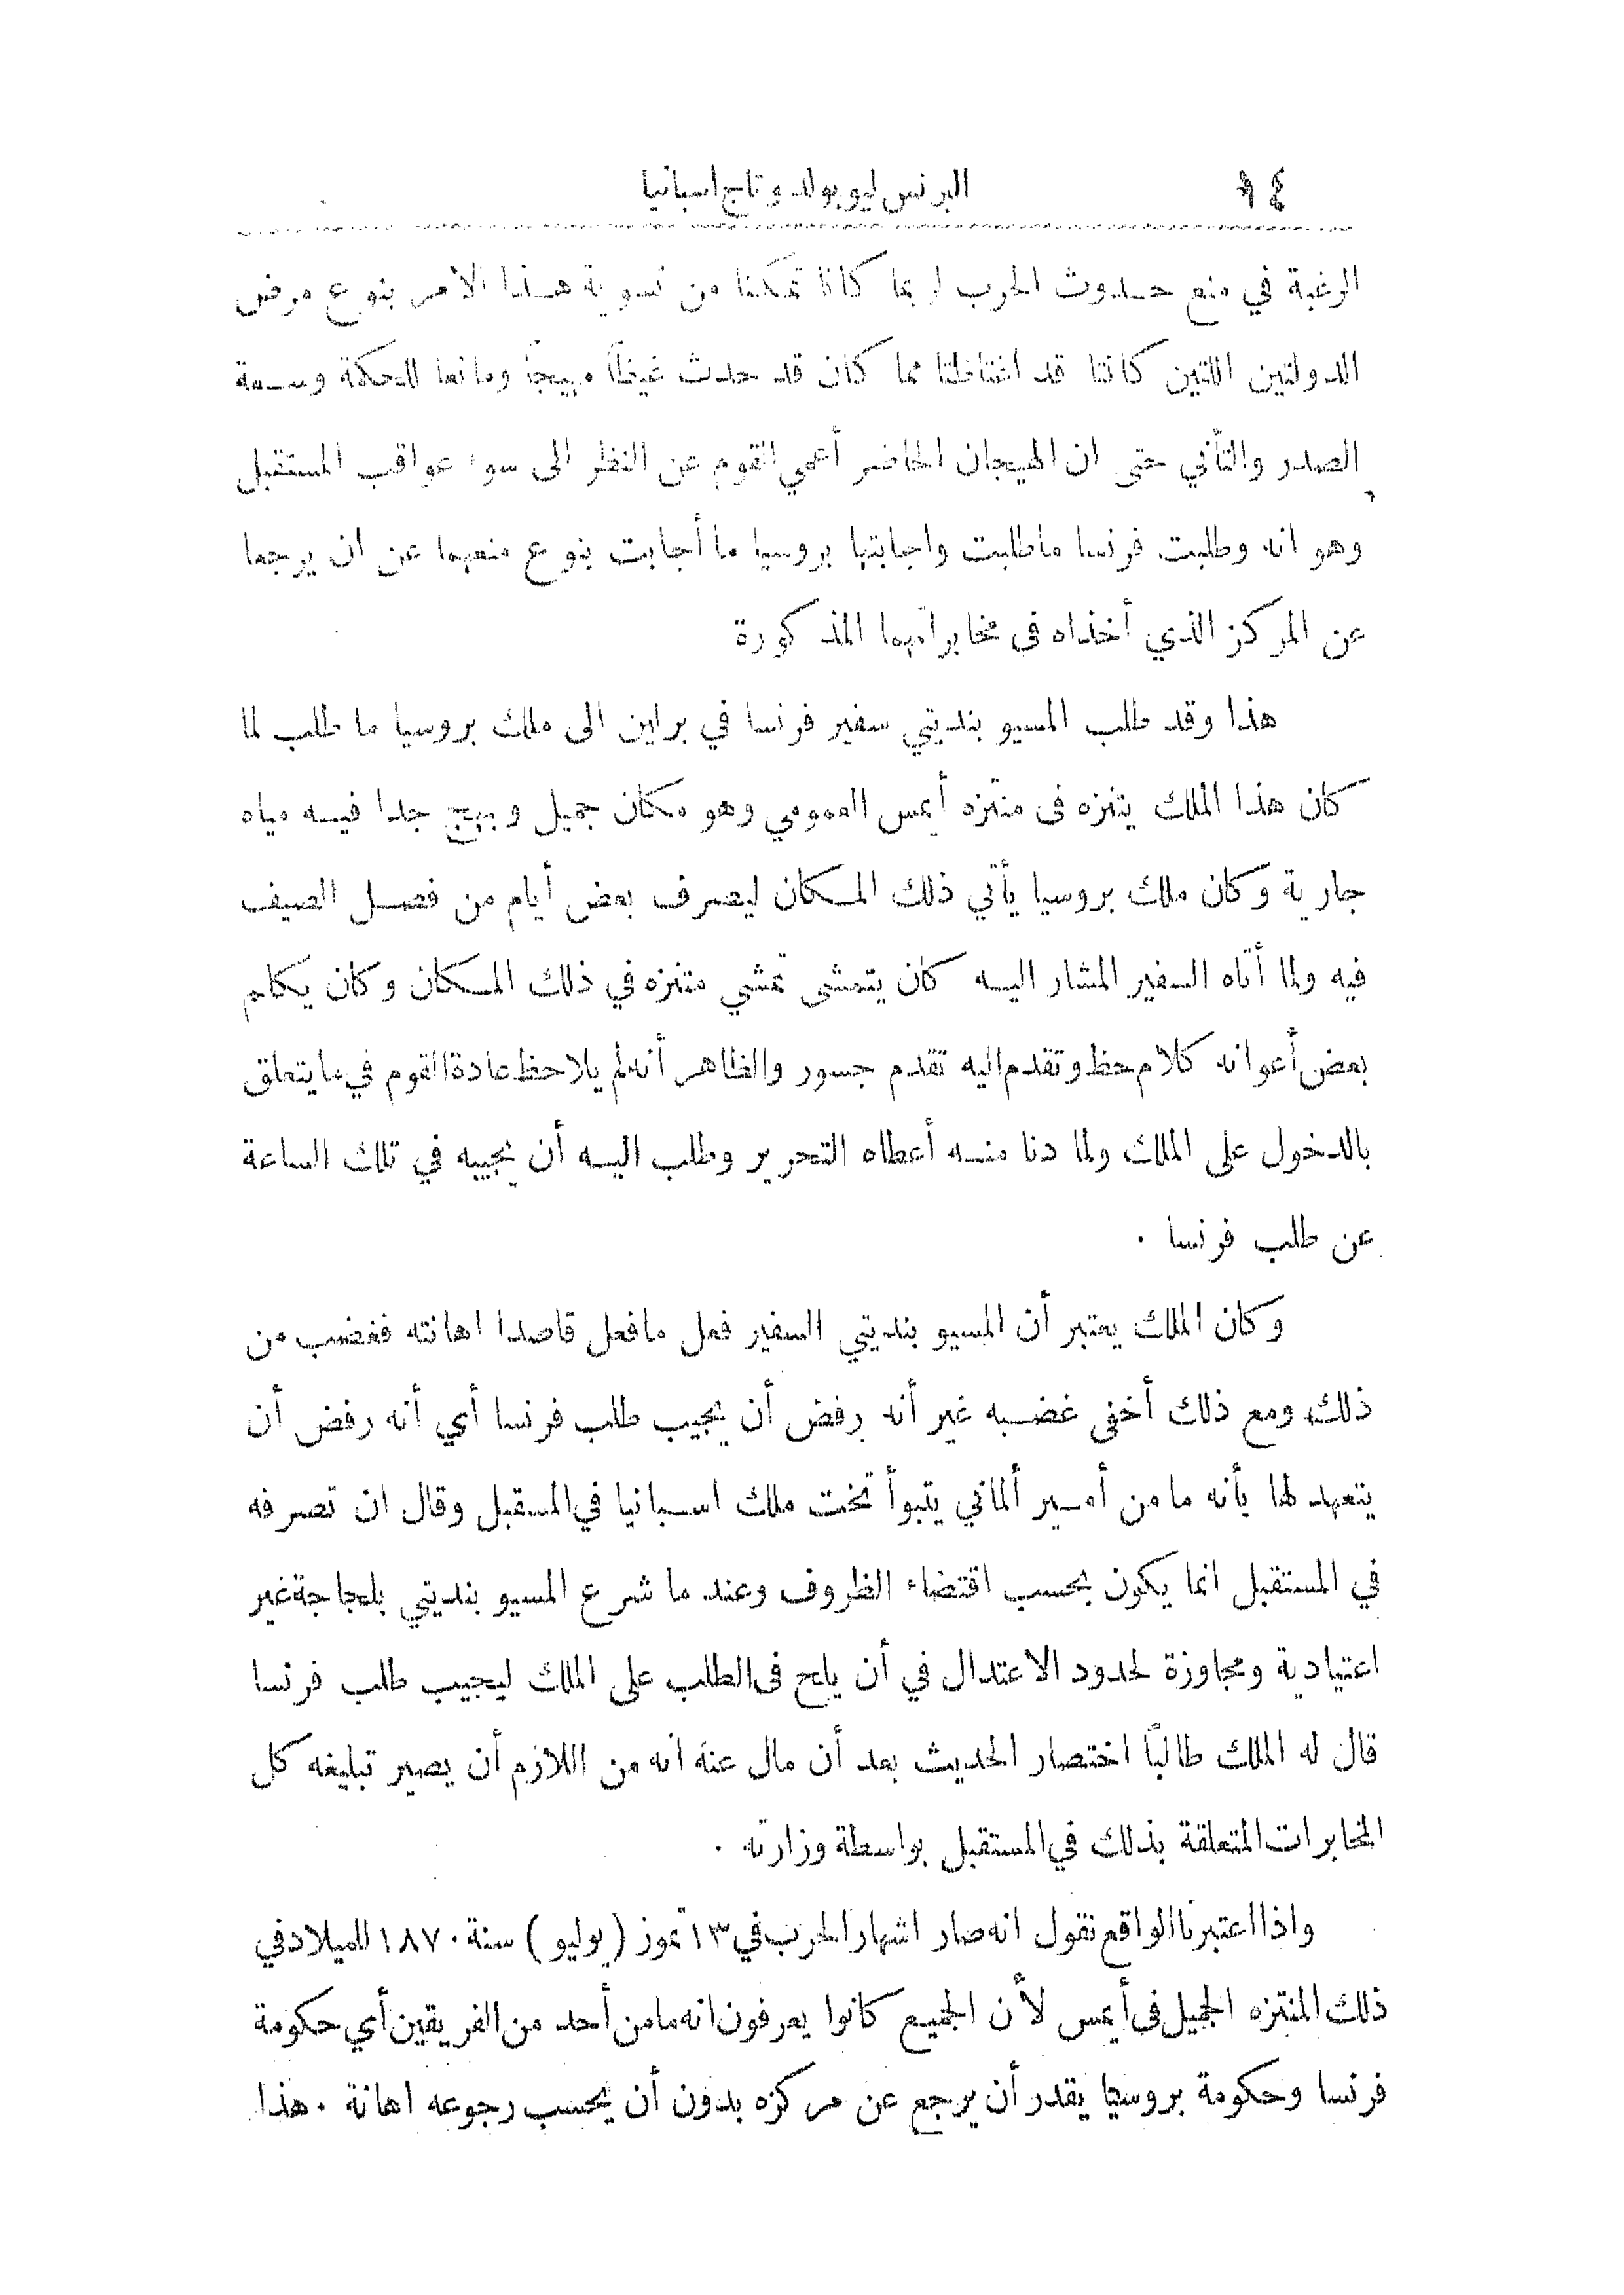 ٩٤ البرنس ليوبولد وتاج اسبانيا
الرغبة في منع حدوث الحرب لربما كانا تمكنا من تسوية هذا الامر بنوع مرض
الدولتين اللتين كانتا قد اغتاظتا مما كان قد حدث غيظاً مهيجاً ومانعا للحكمة وسعة
الصدر والتأني حتى ان الهيجان الحاضر أعمي القوم عن النظر الى سوء عواقب المستقبل
وهو انه وطلبت فرنسا ماطلبت واجابتها بروسيا ما أجابت بنوع منعهما عن ان يرجعا
عن المركز الذي أخذاه فى مخابراتهما المذكورة
هذا وقد طلب المسيو بنديتي سفير فرنسا في برلين الى ملك بروسيا ما طلب لما
كان هذا الملك يتنزه فى منتزه أيمس العمومي وهو مكان جميل وبهج جدا فيه مياه
جارية وكان ملك بروسيا يأتي ذلك المكان ليصرف بعض أيام من فصل الصيف
فيه ولما أتاه السفير المشار اليه كان يتمشى تمشي متنزه في ذلك المكان وكان يكلم
بعض أعوانه كلام حظ وتقدم اليه تقدم جسور والظاهر أنه لم يلاحظ عادة القوم في ما يتعلق
بالدخول على الملك ولما دنا منه أعطاه التحرير وطلب اليه أن يجيبه في تلك الساعة
عن طلب فرنسا .
وكان الملك يعتبر أن المسيو بنديتي السفير فعل مافعل قاصدا اهانته فغضب من
ذلك ومع ذلك أخفى غضبه غير أنه رفض أن يجيب طلب فرنسا أي أنه رفض أن
يتعهد لها بأنه ما من أمير ألماني يتبوأ تخت ملك اسبانيا في المسقبل وقال ان تصرفه
في المستقبل انما يكون بحسب اقتضاء الظروف وعند ما شرع المسيو بنديتي بلجاجة غير
اعتيادية ومجاوزة لحدود الاعتدال في أن يلح فى الطلب على الملك ليجيب طلب فرنسا
قال له الملك طالبًا اختصار الحديث بعد أن مال عنه انه من اللازم أن يصير تبليغه كل
المخابرات المتعلقة بذلك في المستقبل بواسطة وزارته .
واذا اعتبرنا الواقع نقول انه صار اشهار الحرب في ١٣ تموز (يوليو) سنة ١٨٧٠ للميلاد في
ذلك المنتزه الجميل فى أيمس لأن الجميع كانوا يعرفون انه مامن أحد من الفريقين أي حكومة
فرنسا وحكومة بروسيا يقدر أن يرجع عن مركزه بدون أن يحسب رجوعه اهانة . هذا